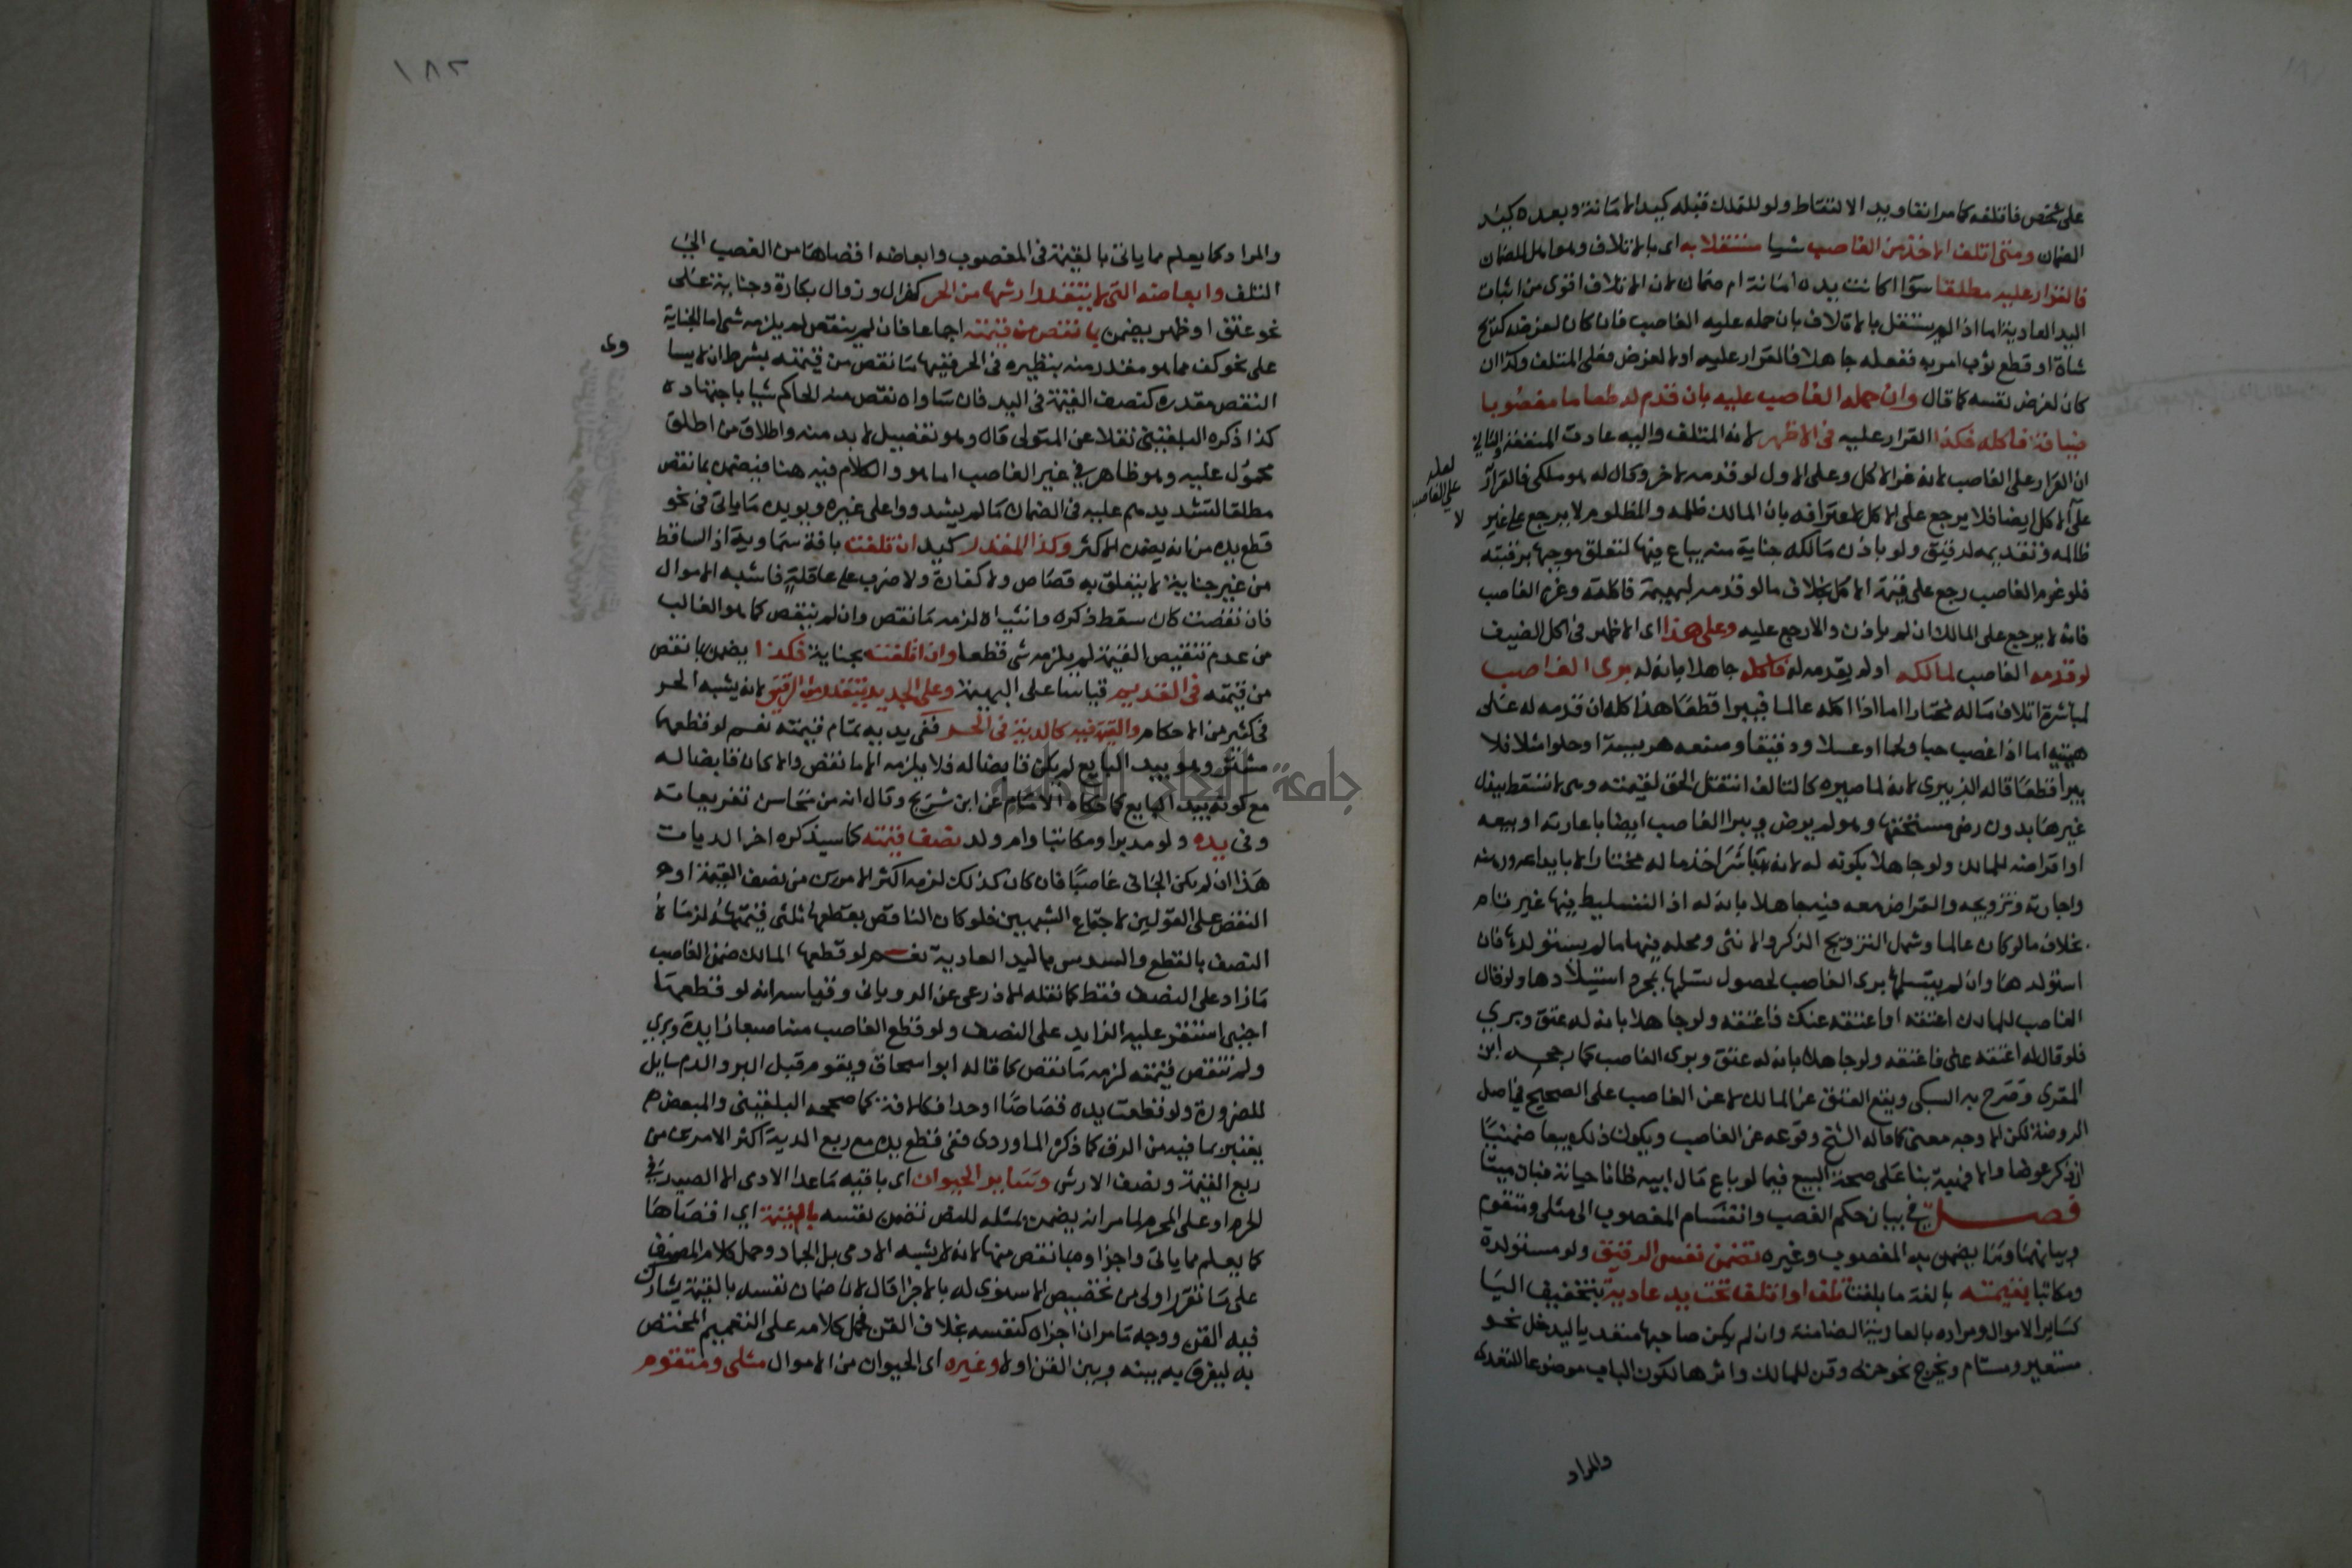 على شخص فاتلفه كما مر انفا ويد الالتقاط ولو للتملك قبله كيد الامانة وبعده كيد
الضمان ومتى اتلف الاخذ من الغاصب شيا مستقلا به اى بالاتلاف وهو اهل للضمان
فالقرار عليه مطلقا سوا اكانت يده امانة ام ضمان لان الاتلاف اقوى من اثبات
اليد العادية اما اذا لم يستقل بالاتلاف بان حمله عليه الغاصب فان كان لغرضه كذبح
شاة او قطع ثوب امر به ففعله جاهلا فالقرار عليه او لا لغرض فعلى المتلف وكذا ان
كان لغرض نفسه كما قال وان حمله الغاصب عليه بان قدم له طعاما مغصوبا
ضيافة فاكله فكذا القرار عليه فى الاظهر لانه المتلف واليه عادت المنفعة والثانى
ان القرار على الغاصب لانه غر الاكل وعلى الاول لو قدمه لاخر وقال له هو ملكى فالقرار
على الاكل ايضا فلا يرجع على الاكل لاعترافه بان المالك ظلمه والمظلوم لا يرجع على غير
لعله
على الغاصب
لا
ظالمه وتقديمه لرقيق ولو باذن مالكه جناية منه يباع فيها لتعلق موجبها برقبته
فلو غرم الغاصب رجع على قيمة الاكل بخلاف ما لو قدمه لبهيمة فاكلته وغرم الغاصب
فانه لا يرجع على المالك ان لم ياذن والا رجع عليه وعلى هذا اى الاظهر فى اكل الضيف
لو قدمه الغاصب لمالكه او لم يقدمه له فاكله جاهلا بانه له برى الغاصب
لمباشرة اتلاف ماله مختارا اما اذا اكله عالما فيبرا قطعا هذا كله ان قدمه له على
هيئته اما اذا غصب حبا ولحما او عسلا ودقيقا وصنعه هريسة او حلوا مثلا فلا
يبرا قطعا قاله الزبيرى لانه لما صيره كالتالف انتقل الحق لقيمته وهى لا تسقط ببذل
غيرها بدون رضى مستحقها وهو لم يرض ويبرا الغاصب ايضا باعارته او بيعه
او اقراضه للمالك ولو جاهلا بكونه له لانه باشر اخذ ماله مختارا لا بايداعه ورهنه
واجارته وتزويجه والقراض معه فيه جاهلا بانه له اذ التسليط فيها غير تام
بخلاف ما لو كان عالما وشمل التزويج الذكر والانثى ومحله فيها ما لم يستولدها فان
استولدها وان لم يتسلمها برى الغاصب لحصول تسلمها بمجرد استيلادها ولو قال
الغاصب للمالك اعتقه او اعتقه عنك فاعتقه ولو جاهلا بانه له عتق وبرى
فلو قال له اعتقه عنى فاعتقه ولو جاهلا بانه له عتق وبرى الغاصب كما رجحه ابن
المقرى وصرح به السبكى ويقع العتق عن المالك لا عن الغاصب على الصحيح فى اصل
الروضة لكن الاوجه معنى كما قاله الشيخ وقوعه عن الغاصب ويكون ذلك بيعا ضمنيا
ان ذكر عوضا والا فهبة بنا على صحة البيع فيما لو باع مال ابيه ظانا حياته فبان ميتا
فصل فى بيان حكم الغصب وانقسام المغصوب الى مثلى ومتقوم
وبيانهما وما يضمن به المغصوب وغيره تضمن نفس الرقيق ولو مستولدة
ومكاتبا بقيمته بالغة ما بلغت تلف او اتلف تحت يد عادية بتخفيف اليا
كساير الاموال ومراده بالعادية الضامنة وان لم يكن صاحبها متعديا ليدخل نحو
مستعير ومستام ويخرج نحو حربى وقن للمالك واثرها لكون الباب موضوعا للتعدى
والمراد
١٨٢
والمراد كما يعلم مما ياتى بالقيمة فى المغصوب وابعاضه اقصاها من الغصب الى
التلف وابعاضه التى لا يتقدر ارشها من الحر كهزال وزوال بكارة وجناية على
نحو عنق او ظهر يضمن بما نقص من قيمته اجماعا فان لم ينقص لم يلزمه شى اما الجناية
على نحو كف مما هو مقدر منه بنظيره فى الحر ففيها ما نقص من قيمته بشرط ان لا يسا
وى
النقص مقدره كنصف القيمة فى اليد فان ساواه نقص منه الحاكم شيا باجتهاده
كذا ذكره البلقينى نقلا عن المتولى قال وهو تفصيل لا بد منه واطلاق من اطلق
محمول عليه وهو ظاهر فى غير الغاصب اما هو والكلام فيه هنا فيضمن بما نقص
مطلقا لتشديدهم عليه فى الضمان ما لم يشددوا على غيره ويويده ما ياتى فى نحو
قطع يده من انه يضمن الاكثر وكذا المقدر كيد ان تلفت بافة سماوية اذ الساقط
من غير جناية لا يتعلق به قصاص ولا كفارة ولا ضرب على عاقلة فاشبه الاموال
فان نقصت كان سقط ذكره وانثياه لزمه ما نقص وان لم ينقص كما هو الغالب
من عدم تنقيص القيمة لم يلزمه شى قطعا وان اتلفت بجناية فكذا يضمن بما نقص
من قيمته فى القديم قياسا على البهيمة وعلى الجديد يتقدر من الرقيق لانه يشبه الحر
فى كثير من الاحكام والقيمة فيه كالدية فى الحر ففى يديه تمام قيمته نعم لو قطعهما
مشتر وهو بيد البايع لم يكن قابضا له فلا يلزمه الا ما نقص والا كان قابضا له
مع كونه بيد البايع كما حكاه الامام عن ابن شريج وقال انه من محاسن تفريعاته
وفى يده ولو مدبرا ومكاتبا وام ولد نصف قيمته كما سيذكره اخر الديات
هذا ان لم يكن الجانى غاصبا فان كان كذلك لزمه اكثر الامرين من نصف القيمة او
النقص على القولين لاجتماع الشبهين فلو كان الناقص بقطعها ثلثى قيمته لزماه
النصف بالقطع والسدس باليد العادية نعم لو قطعها المالك ضمن الغاصب
ما زاد على النصف فقط كما نقله الاذرعى عن الرويانى وقياسه انه لو قطعها
اجنبى استقر عليه الزايد على النصف ولو قطع الغاصب منه اصبعا زايدة وبرى
ولم تنقص قيمته لزمه ما نقص كما قاله ابو اسحاق ويقوم قبل البرو والدم سايل
للضرورة ولو قطعت يده قصاصا او حدا فكالافة كما صححه البلقينى والمبعض
يعتبر بما فيه من الرق كما ذكره الماوردى ففى قطع يده مع ربع الدية اكثر الامرين من
ربع القيمة ونصف الارش وساير الحيوان اى باقيه ما عدا الادمى الا الصيد فى
الحرم او على المحرم لما مر انه يضمن بمثله للنص تضمن نفسه بالقيمة اى اقصاها
كما يعلم مما ياتى واجزاوه بما نقص منها لانه لا يشبه الادمى بل الجماد وحمل كلام المصنف
على ما تقرر اولى من تخصيص الاسنوى له بالاجزا قال لان ضمان نفسه بالقيمة يشارك
فيه القن ووجه ما مر ان اجزاه كنفسه بخلاف القن فحمل كلامه على التعميم المختص
به ليفرق به بينه وبين القن اولا وغيره اى الحيوان من الاموال مثلى ومتقوم
جامعة النجاح الوطنية